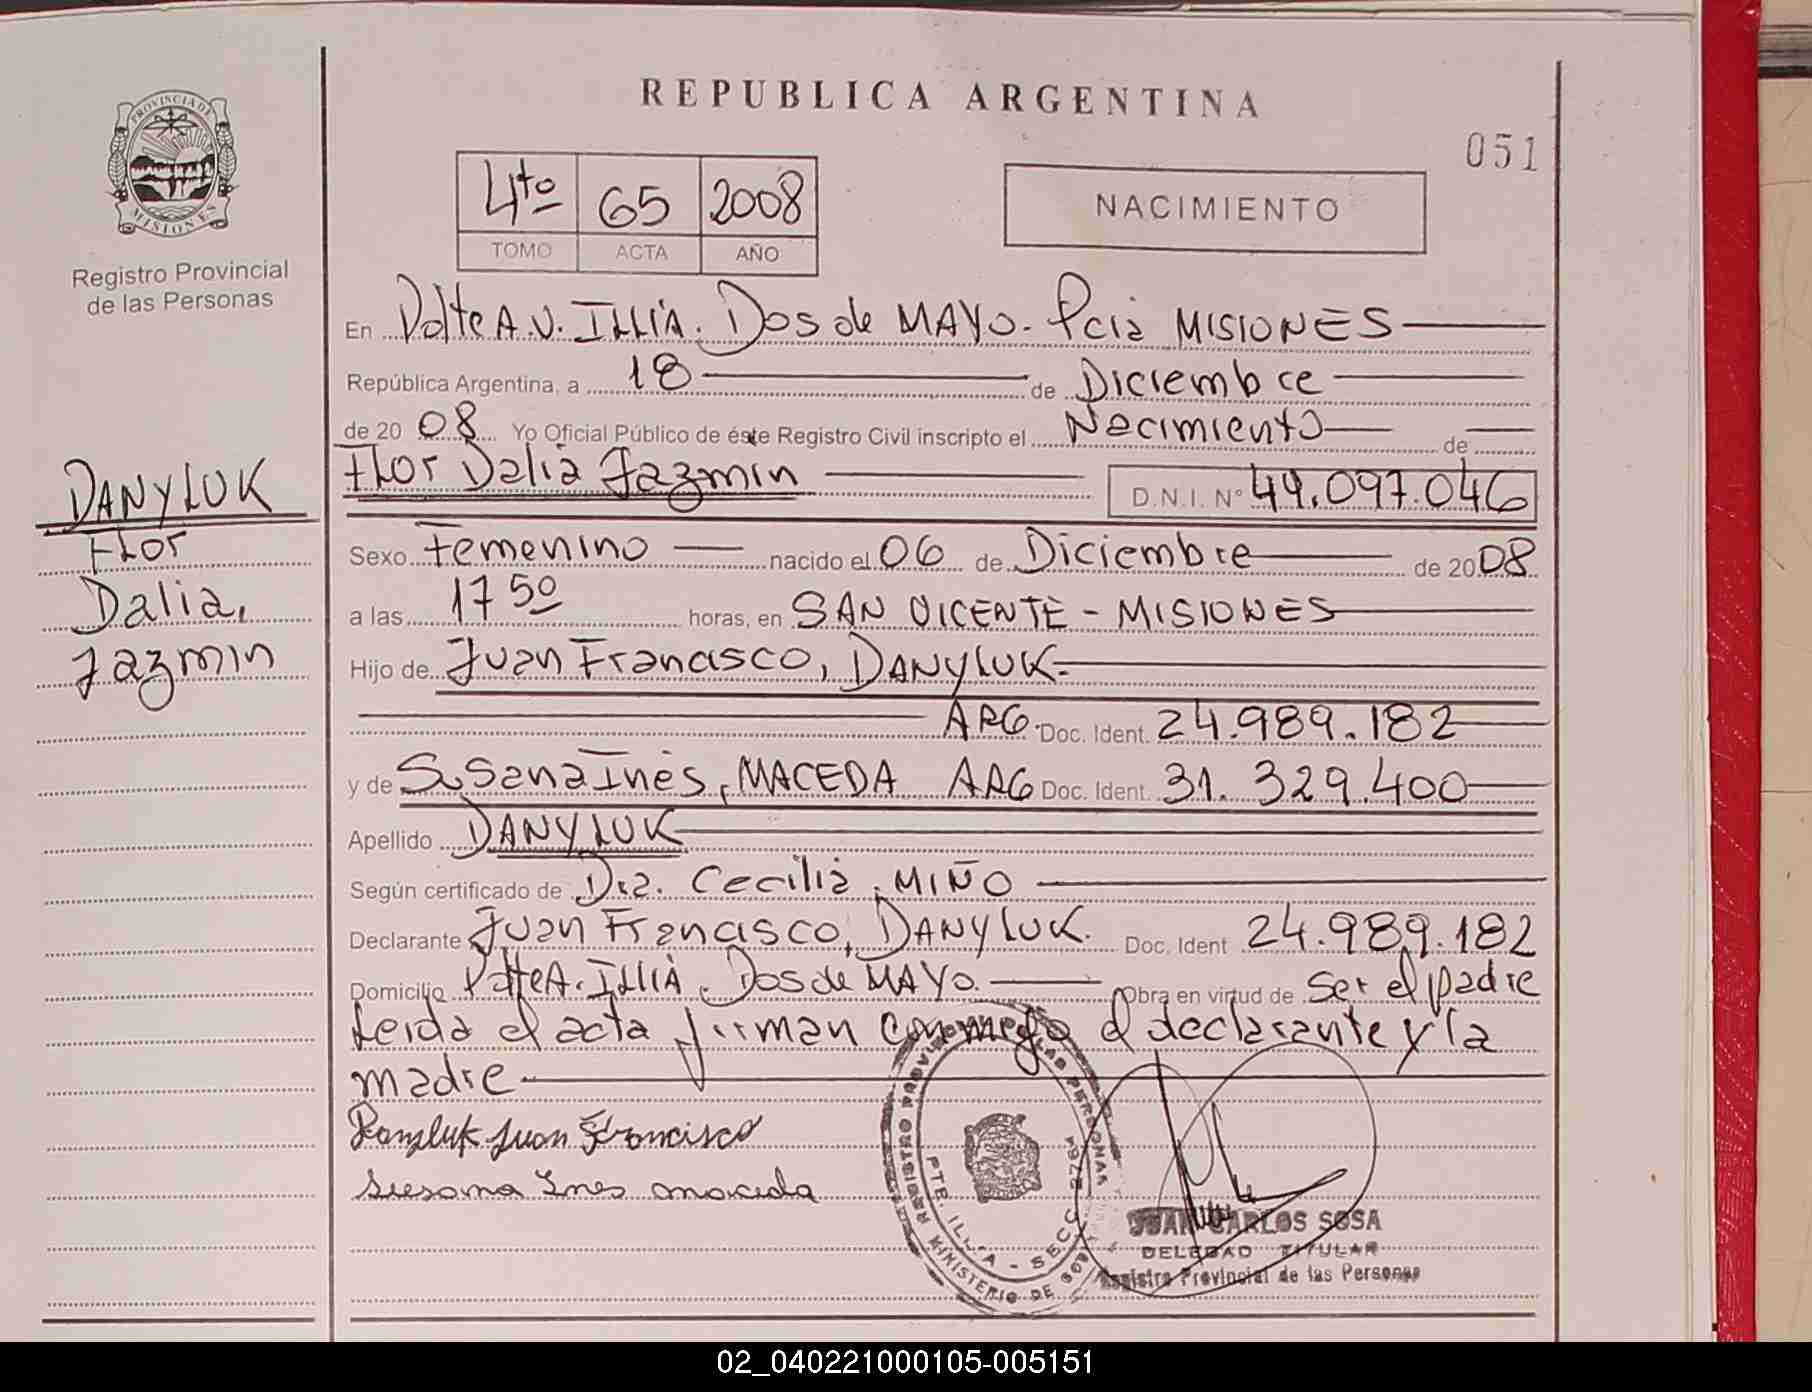 REPUBLICA ARGENTINA
051
PROVINCIA DE MISIONES
Registro Provincial
de las Personas
4to 65 2008
TOMO ACTA AÑO
NACIMIENTO
En Pdte A.U. ILLIA. Dos de MAYO. Pcia MISIONES
República Argentina, a 18 de Diciembre
de 20 08 Yo Oficial Público de éste Registro Civil inscripto el Nacimiento de
Flor Dalia Jazmin D.N.I. N° 49.097.046
DANYLUK
Flor
Dalia,
Jazmin
Sexo Femenino nacido el 06 de Diciembre de 2008
a las 17 50 horas, en SAN VICENTE - MISIONES
Hijo de Juan Francisco, DANYLUK
ARG. Doc. Ident. 24.989.182
y de Susana Inès, MACEDA ARG Doc. Ident. 31.329.400
Apellido DANYLUK
Según certificado de Dra. Cecilia, MIÑO
Declarante Juan Francisco, DANYLUK. Doc. Ident 24.989.182
Domicilio Pdte A. ILLIA. Dos de MAYO. Obra en virtud de Ser el padre
Leida el acta firman conmigo el declarante y la
madre
Danyluk Juan Francisco
Susana Ines maceda
REGISTRO PROVINCIAL DE LAS PERSONAS
PTE. ILLIA - SECC. 2764
MINISTERIO DE GOB
JUAN CARLOS SOSA
DELEGAD TITULAR
Registro Provincial de las Personas
02_040221000105-005151